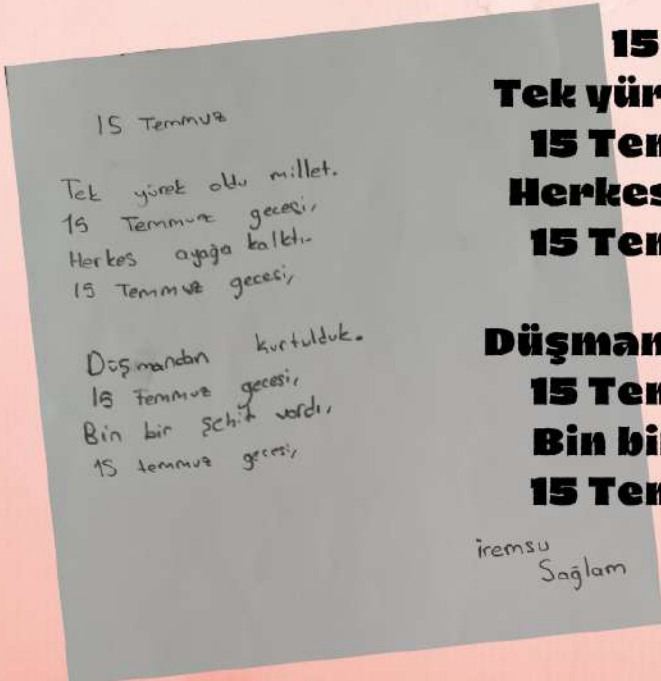 15 Temmuz
Tek yürek oldu millet.
15 Temmuz gecesi,
Herkes ayağa kalktı.
15 Temmuz gecesi,
Düşmandan kurtulduk.
15 Temmuz gecesi,
Bin bir şehit vardı,
15 temmuz gecesi,
iremsu
Sağlam
15
Tek yür
15 Tem
Herkes
15 Tem
Düşman
15 Tem
Bin bir
15 Tem